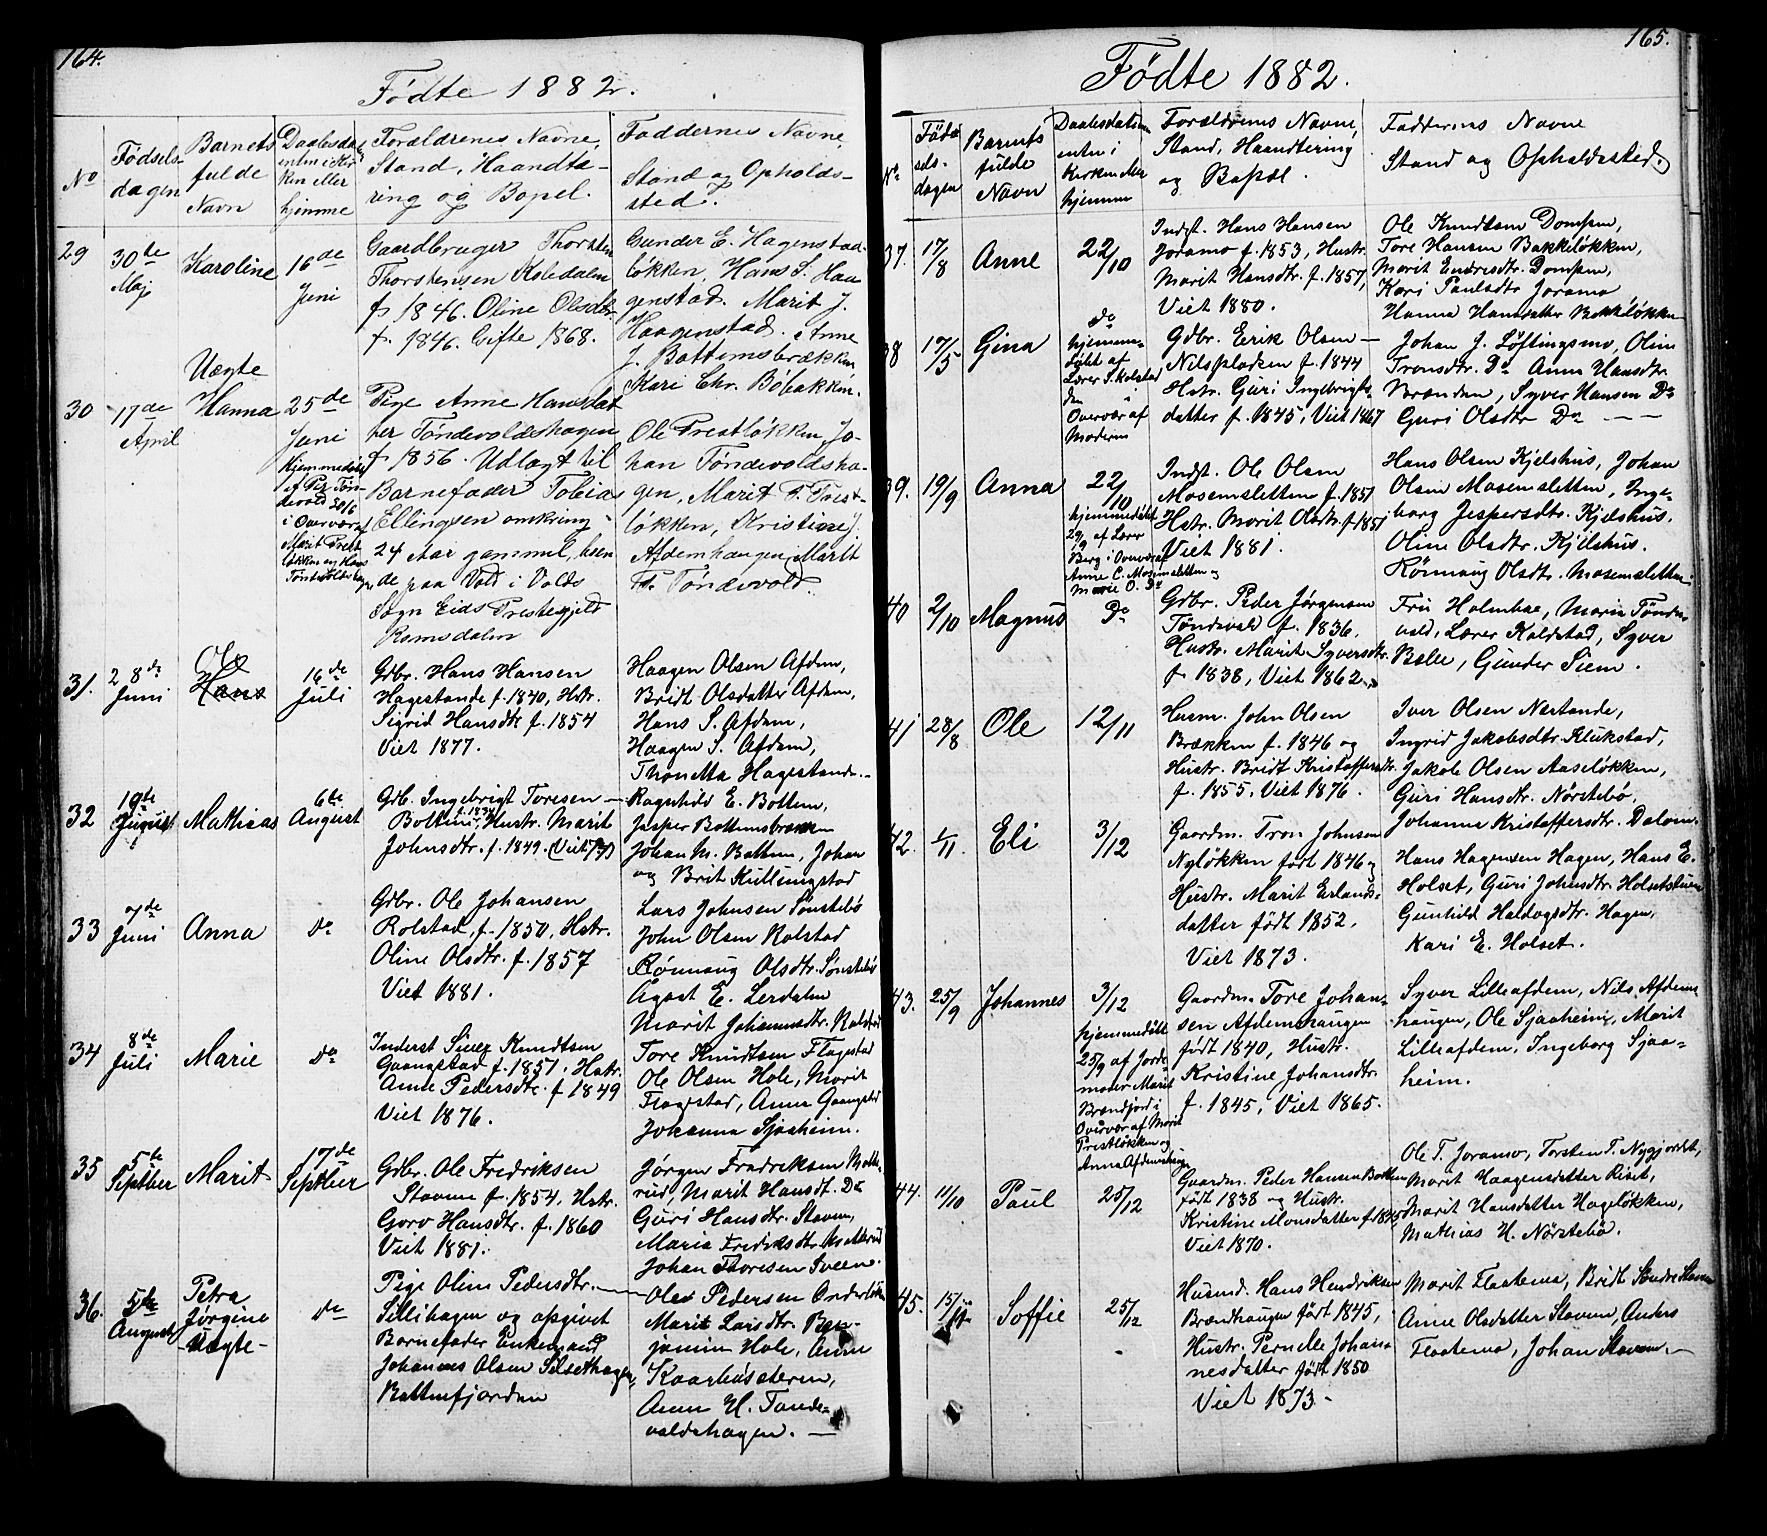 164.
Födte 1882.
No
Födsels-
dagen
Barnets
fulde
Navn
Daabsdat
enten i Kir
ken eller
hjemme
Forældrenes Navne,
Stand, Haandte-
ring og Bopel.
Faddernes Navne,
Stand og Opholds-
sted.
29
30te
Maj
Karoline
16de
Juni
Gaardbruger Thorsten
Thorstensen Koledalen
f. 1846. Oline Olsdtr
f. 1846. Gifte 1868.
Gunder E. Hagenstad-
løkken, Hans S. Haa
genstad. Marit J.
Haagenstad. Anne
J. Bottemsbrækken
Kari Chr. Böbakken.
30
17de
April
Uægte
Hanna
25de
Juni
Hjemmedøbt
af Per Tøn-
devold 20/6
i Overvær af
Marit Prest
løkken og Hans
Tøndevoldshagen
Pige Anne Hansdat
ter Töndevoldshagen
f. 1856. Udlagt til
Barnefader Tobias
Ellingsen omkring
24 Aar gammel, hen
de paa Vold i Volds
Sogn Eids Prestegjeld
Romsdalen
Ole Prestløkken, Jo-
han Töndevoldsha-
gen, Marit T. Prest-
løkken, Kristine J.
Afdemhaugen, Marit
Fr. Töndevold.
31.
28de
Juni
Ole
Hans
16de
Juli
Gdbr. Hans Hansen
Hagestande f. 1840, Hstr.
Sigrid Hansdtr f. 1854
Viet 1877.
Haagen Olsen Afdem,
Bridt Olsdatter Afdem,
Hans S. Afdem,
Haagen S. Afdem,
Thonetta Hagestande.
32
19de
Mathias
6te
August
Gdb. Ingebrigt Toresen
Bottem, f. 1834, Hustr. Marit
Johnsdtr. f. 1849.
Ragnhild E. Bottem,
Jesper Bottemsbrækken
Johan M. Bottem, Johan
og Brit Killingstad
33
7de
Juni
Anna
Do
Gdbr. Ole Johansen
Rolstad, f. 1850, Hstr.
Oline Olsdtr. f. 1857
Viet 1881.
Lars Johnsen Sønstebø
John Olsen Rolstad
Rönnaug Olsdtr. Sønstebø
Agost E. Lerdalen
Marit Johannesdtr. Rolstad
34
8de
Juli
Marie
Do
Inderst Siver Knudtsen
Gaangstad f. 1851, Hstr.
Anne Pedersdtr. f. 1849
Viet 1876.
Tore Knudtsen Flagestad
Ole Olsen Hole, Marit
Flagestad, Anne Gaangstad
Johanna Sjaaheim.
35
5te
Septber
Marit
17de
Septber
Gdbr. Ole Fredriksen
Staven f. 1854, Hstr.
Goro Hansdtr. f. 1860
Viet 1881.
Jörgen Fredriksen Motte-
rud, Marit Hansdt. Do
Guri Hansdtr. Staven,
Marie Fredriksdtr. Motterud
Johan Thoresen Sveen.
36.
5te
August
Petra
Jörgine
-Uægte-
Do
Pige Oline Pedersdtr.
Lillehagen og opgivet
Barnefader Enkemand
Johannes Olsen Silsethagen,
Battenfjorden
Oles Pedersen Onderløkken
Marit Larsdtr. Ben-
jamin Hole, Anne
Kaarbösæteren,
Anne H. Tønde-
voldshagen.
165.
Födte 1882.
No
Föd-
sels-
dagen
Barnets
fulde
Navn
Daabsdatum
enten i
Kirken eller
hjemme
Forældrenes Navne,
Stand, Haandtering
og Bopæl.
Faddernes Navne
Stand og Opholdssted.
37.
17/8
Anne
22/10
Indst. Hans Hansen
Joramo f. 1853, Hustr.
Marit Hansdtr. f. 1857,
Viet 1880.
Ole Knudtsen Domsen,
Tore Hansen Bakkeløkken,
Marit Endresdtr. Domsen,
Kari Paulsdtr Joramo
Hanna Hansdatter Bakkeløkken
38
17/5
Gina
Do
hjemme-
døbt af
Lærer S. Kolstad
den
Overvær af
Moderen
Gdbr. Erik Olsen
Nilspladsen f. 1844
Hstr. Guri Ingebrigts-
datter f. 1845, Viet 1867
Johan J. Løftingsmo, Oline
Tronsdtr. Do Anne Hansdtr.
Brænden, Syver Hansen Do
Guri Olsdtr Do
39.
19/9
Anna
22/10
hjemmedøbt
29/9 af Lærer
Berg i Overvær af
Anne E. Mosemsletten og
Marie O. Do
Indst. Ole Olsen
Mosemsletten f. 1851
Hstr. Marit Olsdtr. f. 1851
Viet 1881.
Hans Olsen Kjelshus, Johan
Olsen Mosemsletten, Inge-
borg Jespersdtr. Kjelshus.
Oline Olsdtr. Kjelshus.
Rønnaug Olsdtr. Mosemsletten.
40
2/10
Magnus
Do
Gdbr. Peder Jørgensen
Tøndevold f. 1836.
Hustr. Marit Syversdtr.
f. 1838, Viet 1862.
Fru Holmboe, Marie Tønde-
vold, Lærer Kolstad, Syver
Bolie, Gunder Siem.
41
28/8
Ole
12/11
Husm. John Olsen
Brækken f. 1846 og
Hustr. Bridt Kristoffersdtr.
f. 1855, Viet 1876.
Iver Olsen Nerstande,
Ingrid Jakobsdtr Klukstad,
Jakob Olsen Aaseløkken,
Guri Hansdtr. Nørstebö,
Johanna Kristoffersdtr. Dalom.
42.
1/11
Eli
3/12
Gaardm. Tron Johnsen
Nyløkken født 1846 og
Hustr. Marit Erlands-
datter født 1852.
Viet 1873.
Hans Hagensen Hagen, Hans E.
Holset, Guri Johnsdtr. Holsetstuen
Gunhild Haldogsdtr. Hagen,
Kari E. Holset.
43.
25/9
Johannes
3/12
hjemmedöbt
25/9 af Jorde
moder Marit
Brændjord i
Overvær af Marit
Prestløkken og
Anna Afdemshaugen
Gaardm. Tore Johan-
sen Afdemshaugen
født 1840, Hustr.
Kristine Johansdtr.
f. 1845, Viet 1865.
Syver Lilleafdem, Nils Afdems-
haugen, Ole Sjaaheim, Marit
Lilleafdem, Ingeborg Sjaa-
heim.
44.
11/10
Paul
25/12
Gaardm. Peder Hansen Botten
født 1838 og Hustr.
Kristine Monsdatter f. 1845
Viet 1870.
Ole T. Joramo, Torsten T. Nygjordet,
Marit Haagensdatter Riset,
Marit Hansdatter Hageløkken,
Mathias H. Nørstebø.
45.
15/11
Soffie
25/12
Husmd. Hans Hendriksen
Brændhaugen født 1845,
Hustr. Pernelle Johan-
nesdatter født 1850
Viet 1873.
Marit Flaatemo, Bridt Søndre Staven
Anne Olsdatter Staven, Anders
Flaatemo, Johan Staven.